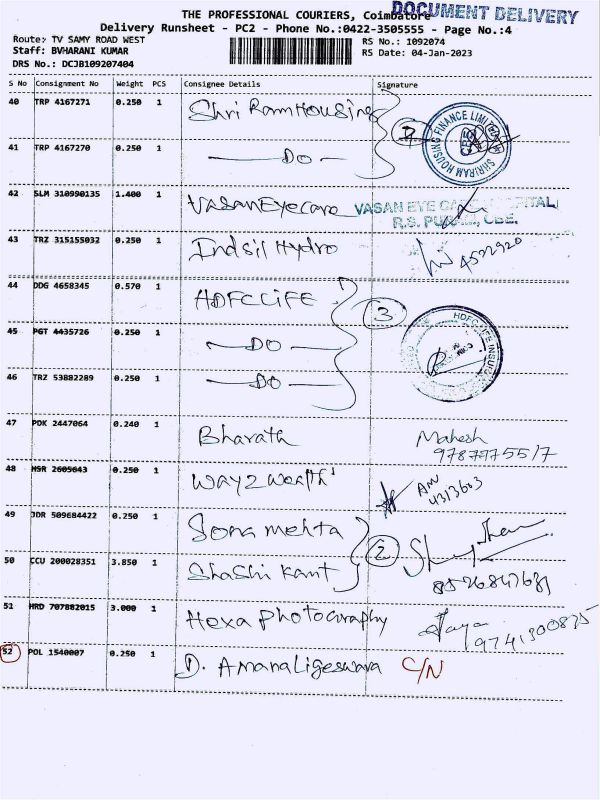 THE PROFESSIONAL COURIERS, Coimbatore
DOCUMENT DELIVERY
Delivery Runsheet - PC2 - Phone No.:0422-3505555 - Page No.:4
Route: TV SAMY ROAD WEST
RS No.: 1092074
Staff: BVHARANI KUMAR
RS Date: 04-Jan-2023
DRS No.: DCJB109207404
S No Consignment No Weight PCS Consignee Details Signature
40 TRP 4167271 0.250 1 Shri Ram Housing
SHRIRAM HOUSING FINANCE LIMITED
41 TRP 4167270 0.250 1 DO
42 SLM 310990135 1.400 1 Vasan Eye care
VASAN EYE CARE HOSPITAL
R.S. PURAM, CBE.
43 TRZ 315155032 0.250 1 Indsil Hydro 4522920
44 DDG 4658345 0.570 1 HDFC LIFE 3
HDFC LIFE
45 PGT 4435726 0.250 1 DO
46 TRZ 53882289 0.250 1 DO
47 PDK 2447064 0.240 1 Bharath Mahesh
9787975517
48 HSR 2605643 0.250 1 Way2wealth AM
4313603
49 JDR 509684422 0.250 1 Sona mehta 2
50 CCU 200028351 3.850 1 Shashi Kant
8526847681
51 HRD 707882015 3.000 1 Hexa Photography Jaya
9741300835
52 POL 1540007 0.250 1 D. Amanaligeswara C/N